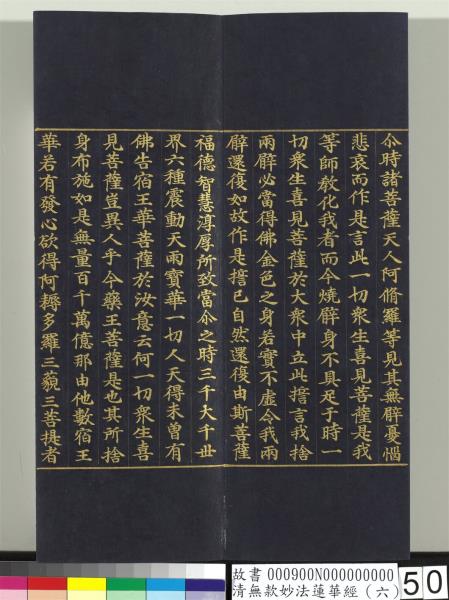 尒時諸菩薩天人阿脩羅等見其無臂憂惱
悲哀而作是言此一切衆生喜見菩薩是我
等師教化我者而今燒臂身不具足于時一
切衆生喜見菩薩於大衆中立此誓言我捨
兩臂必當得佛金色之身若實不虛令我兩
臂還復如故作是誓已自然還復由斯菩薩
福德智慧淳厚所致當尒之時三千大千世
界六種震動天雨寶華一切人天得未曾有
佛告宿王華菩薩於汝意云何一切衆生喜
見菩薩豈異人乎今藥王菩薩是也其所捨
身布施如是無量百千萬億那由他數宿王
華若有發心欲得阿耨多羅三藐三菩提者
故書 000900N000000000
清無款妙法蓮華經（六）
50